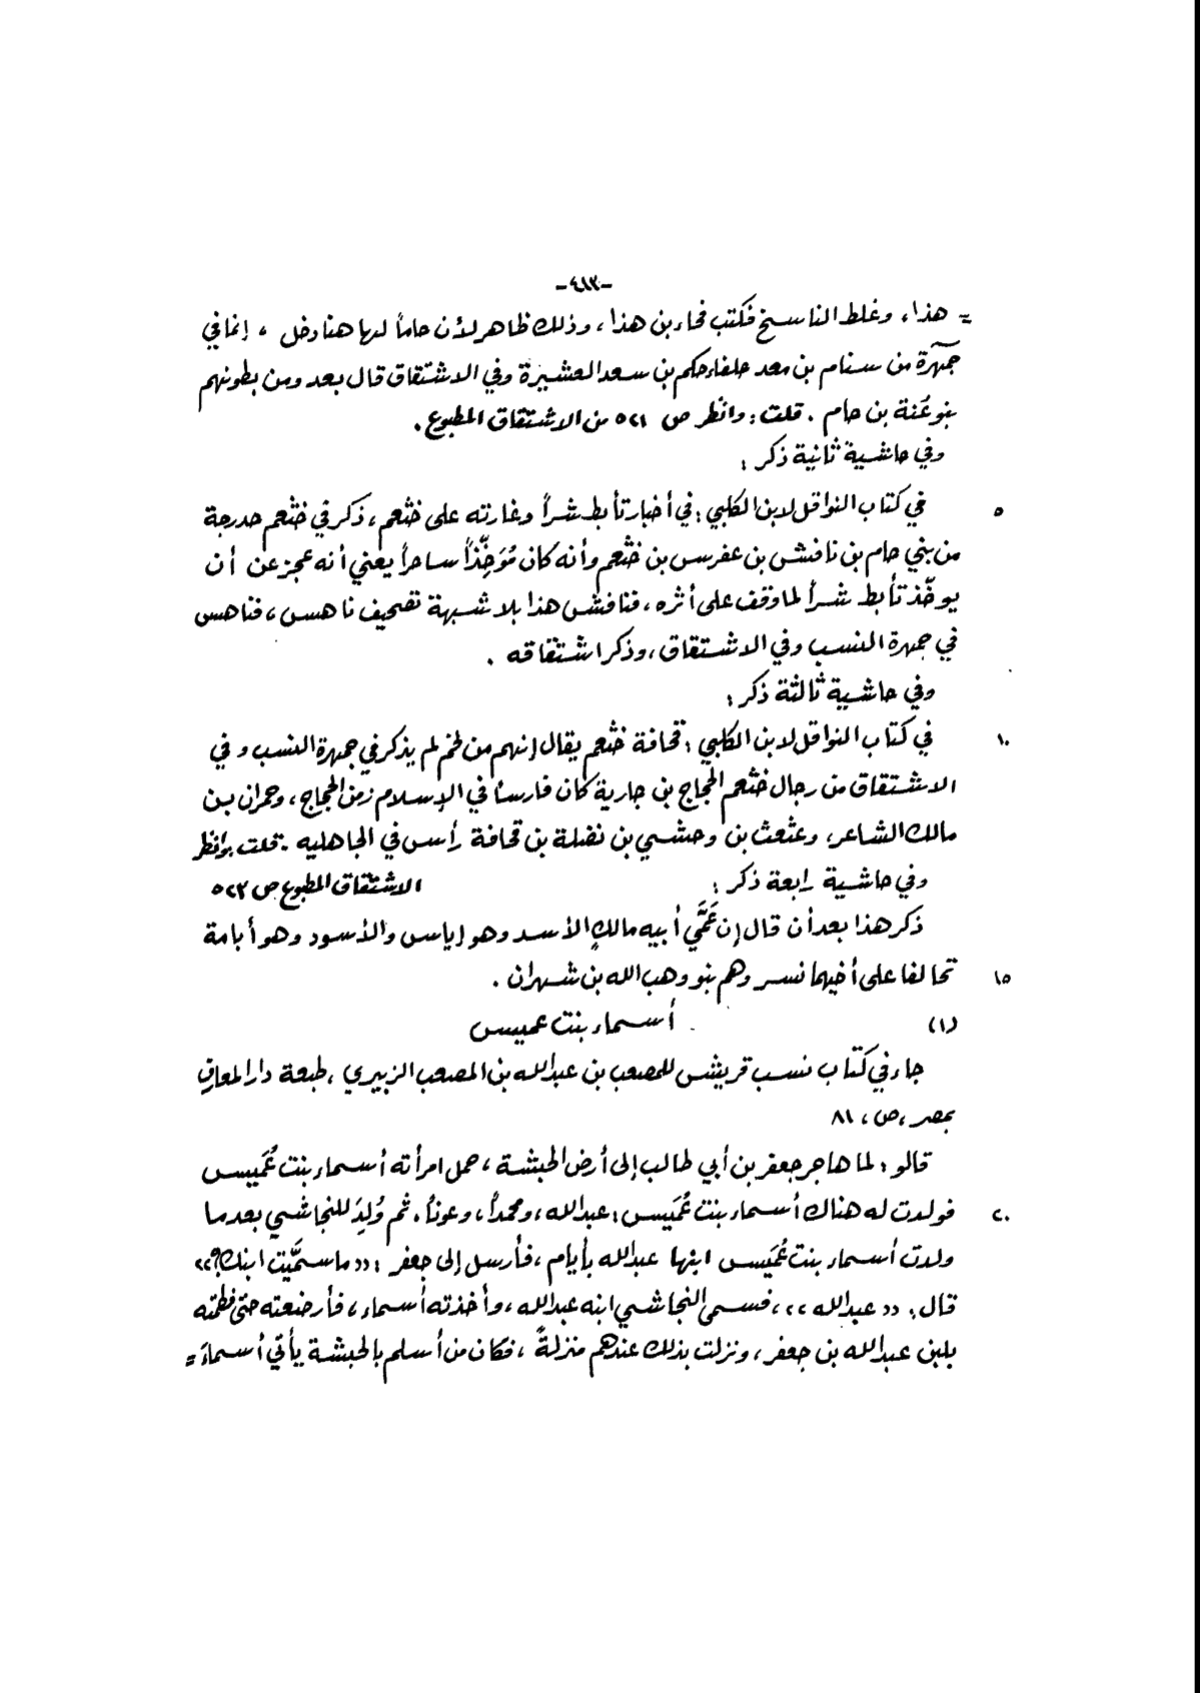 -٤١٣-
= هذا، وغلط الناسخ فكتب فجاء بن هذا، وذلك ظاهر لأن حاماً لها هنا دخل ، إنما في
جمهرة من سنام بن معد حلفاء حكم بن سعد العشيرة وفي الاشتقاق قال بعد ومن بطونهم
بنو عُنة بن حام . قلت : وانظر ص ٥٢١ من الاشتقاق المطبوع .
وفي حاشية ثانية ذكر :
٥ في كتاب النواقل لابن الكلبي : في أخبار تأبط شراً وغارته على خثعم ، ذكر في خثعم حدرجة
من بني حام بن نافش بن عفرس بن خثعم وأنه كان مُوَخِّذاً ساحراً يعني أنه عجز عن أن
يوخّذ تأبط شراً لما وقف على أثره ، فنافش هذا بلا شبهة تصحيف ناهس ، فناهس
في جمهرة النسب وفي الاشتقاق ، وذكر اشتقاقه .
وفي حاشية ثالثة ذكر :
١٠ في كتاب النواقل لابن الكلبي : قحافة خثعم يقال إنهم من لخم لم يذكر في جمهرة النسب وفي
الاشتقاق من رجال خثعم الحجاج بن جارية كان فارساً في الإسلام زمن الحجاج ، وحمران بن
مالك الشاعر ، وعثعث بن وحشي بن نضلة بن قحافة رأس في الجاهليه . قلت : وانظر
وفي حاشية رابعة ذكر : الاشتقاق المطبوع ص ٥٢٣
ذكر هذا بعد أن قال إن عَمَّي أبيه مالكٍ الأسد وهو إياس والأسود وهو أبامة
١٥ تحالفا على أخيهما نسر وهم بنو وهب الله بن شهران .
(١) أسماء بنت عميس
جاء في كتاب نسب قريش للمصعب بن عبدالله بن المصعب الزبيري ، طبعة دار المعارف
بمصر ، ص ، ٨١
قالو : لما هاجر جعفر بن أبي طالب إلى أرض الحبشة ، حمل امرأته أسماء بنت عُمَيس
٢٠ فولدت له هناك أسماء بنت عُمَيس : عبدالله ، ومحمداً ، وعوناً . ثم وُلِدَ للنجاشي بعدما
ولدت أسماء بنت عُمَيس ابنها عبدالله بأيام ، فأرسل إلى جعفر : (( ما سمَّيت ابنك ؟ ))
قال : (( عبدالله )) ، فسمى النجاشي ابنه عبدالله ، وأخذته أسماء ، فأرضعته حتى فطمته
بلبن عبدالله بن جعفر ، ونزلت بذلك عندهم منزلةً ، فكان من أسلم بالحبشة يأتي أسماءَ =